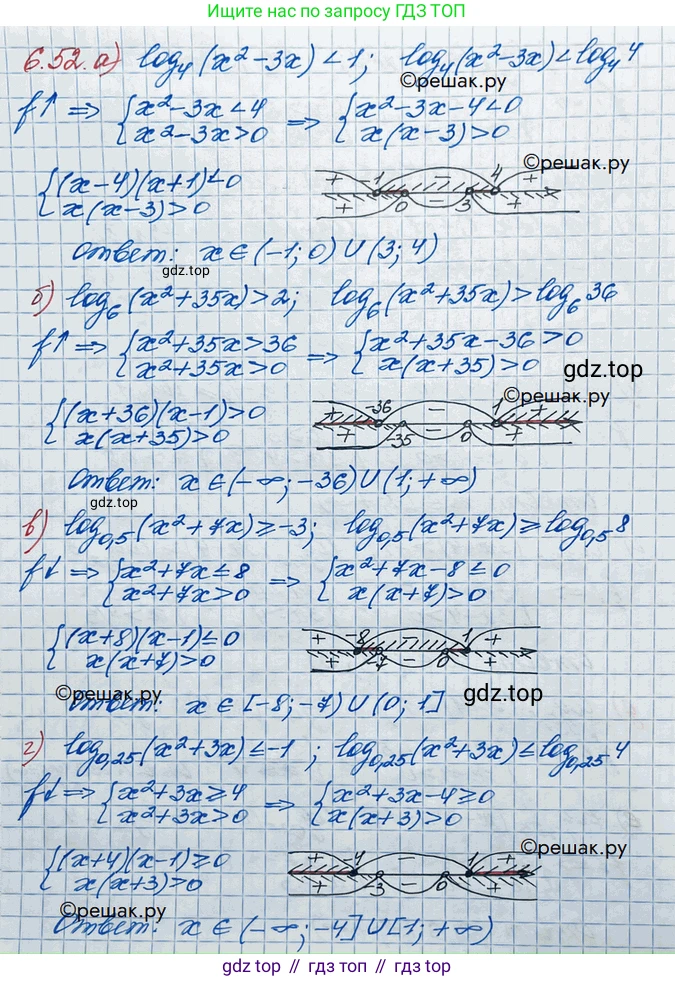 Ищите ответы на все по запросу ГДЗ ТОП
6.52. а) log₄(x²-3x) < 1; log₄(x²-3x) < log₄4
©решак.ру
f↑ => {x²-3x<4 => {x²-3x-4<0
{x²-3x>0 {x(x-3)>0
©решак.ру
{(x-4)(x+1)<0 + -1 - 4 +
{x(x-3)>0 + 0 - 3 +
Ответ: x∈(-1; 0)∪(3; 4)
gdz.top
б) log₆(x²+35x)>2; log₆(x²+35x)>log₆36
f↑ => {x²+35x>36 => {x²+35x-36>0
{x²+35x>0 {x(x+35)>0
gdz.top
©решак.ру
{(x+36)(x-1)>0 -36 - 1 +
{x(x+35)>0 + -35 - 0 +
Ответ: x∈(-∞; -36)∪(1; +∞)
gdz.top
в) log₀,₅(x²+7x)≥-3; log₀,₅(x²+7x)≥log₀,₅8
f↓ => {x²+7x≤8 => {x²+7x-8≤0
{x²+7x>0 {x(x+7)>0
{(x+8)(x-1)≤0 + -8 - 1 +
{x(x+7)>0 + -7 - 0 +
©решак.ру
©решак.ру
gdz.top
Ответ: x∈[-8; -7)∪(0; 1]
г) log₀,₂₅(x²+3x)≤-1; log₀,₂₅(x²+3x)≤log₀,₂₅4
f↓ => {x²+3x≥4 => {x²+3x-4≥0
{x²+3x>0 {x(x+3)>0
©решак.ру
{(x+4)(x-1)≥0 + -4 - 1 +
{x(x+3)>0 + -3 - 0 +
©решак.ру
Ответ: x∈(-∞; -4]∪[1; +∞)
gdz.top // гдз топ // гдз.топ